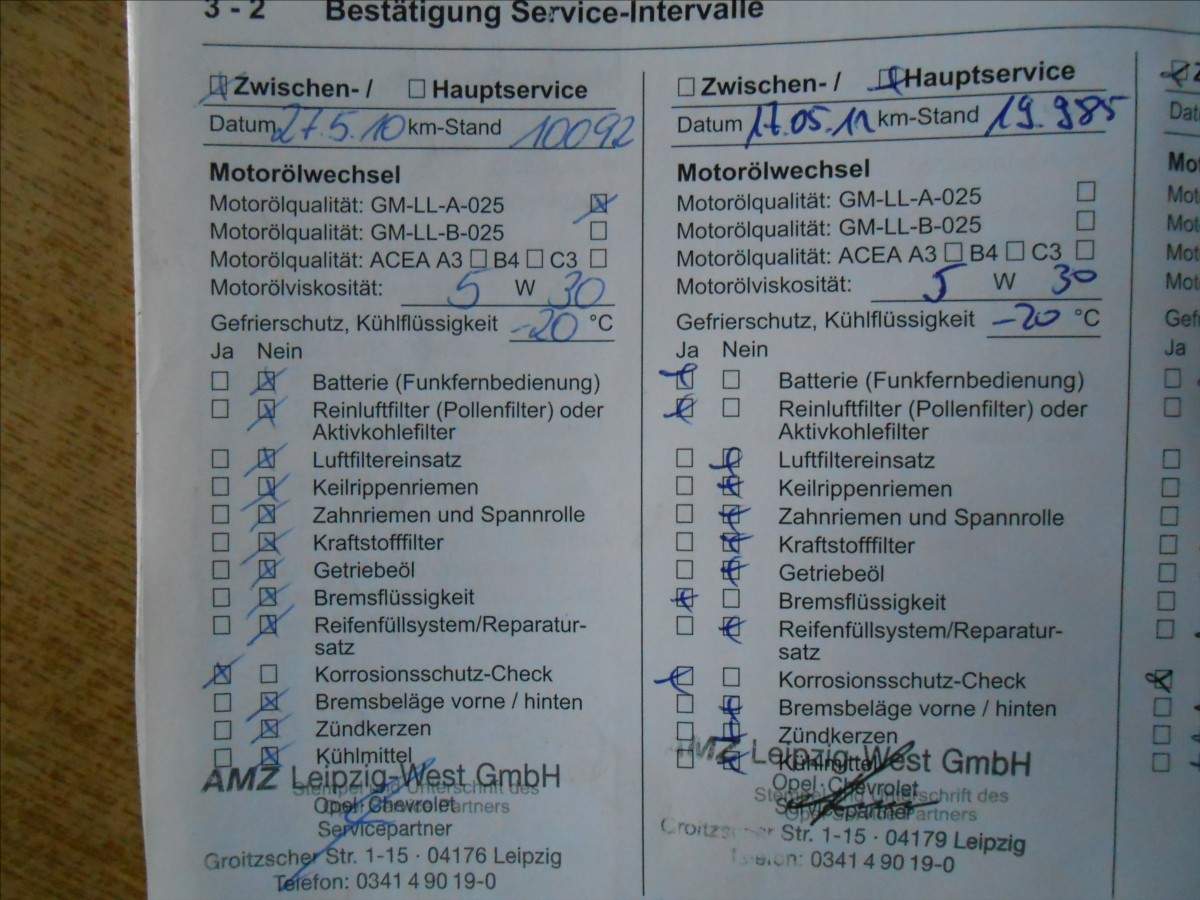 3 - 2 Bestätigung Service-Intervalle
Zwischen- / Hauptservice
Datum 27.5.10 km-Stand 10092
Motorölwechsel
Motorölqualität: GM-LL-A-025
Motorölqualität: GM-LL-B-025
Motorölqualität: ACEA A3 B4 C3
Motorölviskosität: 5 W 30
Gefrierschutz, Kühlflüssigkeit -20 °C
Ja Nein
Batterie (Funkfernbedienung)
Reinluftfilter (Pollenfilter) oder
Aktivkohlefilter
Luftfiltereinsatz
Keilrippenriemen
Zahnriemen und Spannrolle
Kraftstofffilter
Getriebeöl
Bremsflüssigkeit
Reifenfüllsystem/Reparatur-
satz
Korrosionsschutz-Check
Bremsbeläge vorne / hinten
Zündkerzen
Kühlmittel
AMZ Leipzig-West GmbH
Stempel und Unterschrift des
Opel Chevrolet
Opel Service Partners
Servicepartner
Groitzscher Str. 1-15 · 04176 Leipzig
Telefon: 0341 4 90 19-0
Zwischen- / Hauptservice
Datum 17.05.11 km-Stand 19.985
Motorölwechsel
Motorölqualität: GM-LL-A-025
Motorölqualität: GM-LL-B-025
Motorölqualität: ACEA A3 B4 C3
Motorölviskosität: 5 W 30
Gefrierschutz, Kühlflüssigkeit -20 °C
Ja Nein
Batterie (Funkfernbedienung)
Reinluftfilter (Pollenfilter) oder
Aktivkohlefilter
Luftfiltereinsatz
Keilrippenriemen
Zahnriemen und Spannrolle
Kraftstofffilter
Getriebeöl
Bremsflüssigkeit
Reifenfüllsystem/Reparatur-
satz
Korrosionsschutz-Check
Bremsbeläge vorne / hinten
Zündkerzen
Kühlmittel
AMZ Leipzig-West GmbH
Opel · Chevrolet
Stempel und Unterschrift des
Servicepartner
Opel Service Partners
Groitzscher Str. 1-15 · 04179 Leipzig
Telefon: 0341 4 90 19-0
Ja